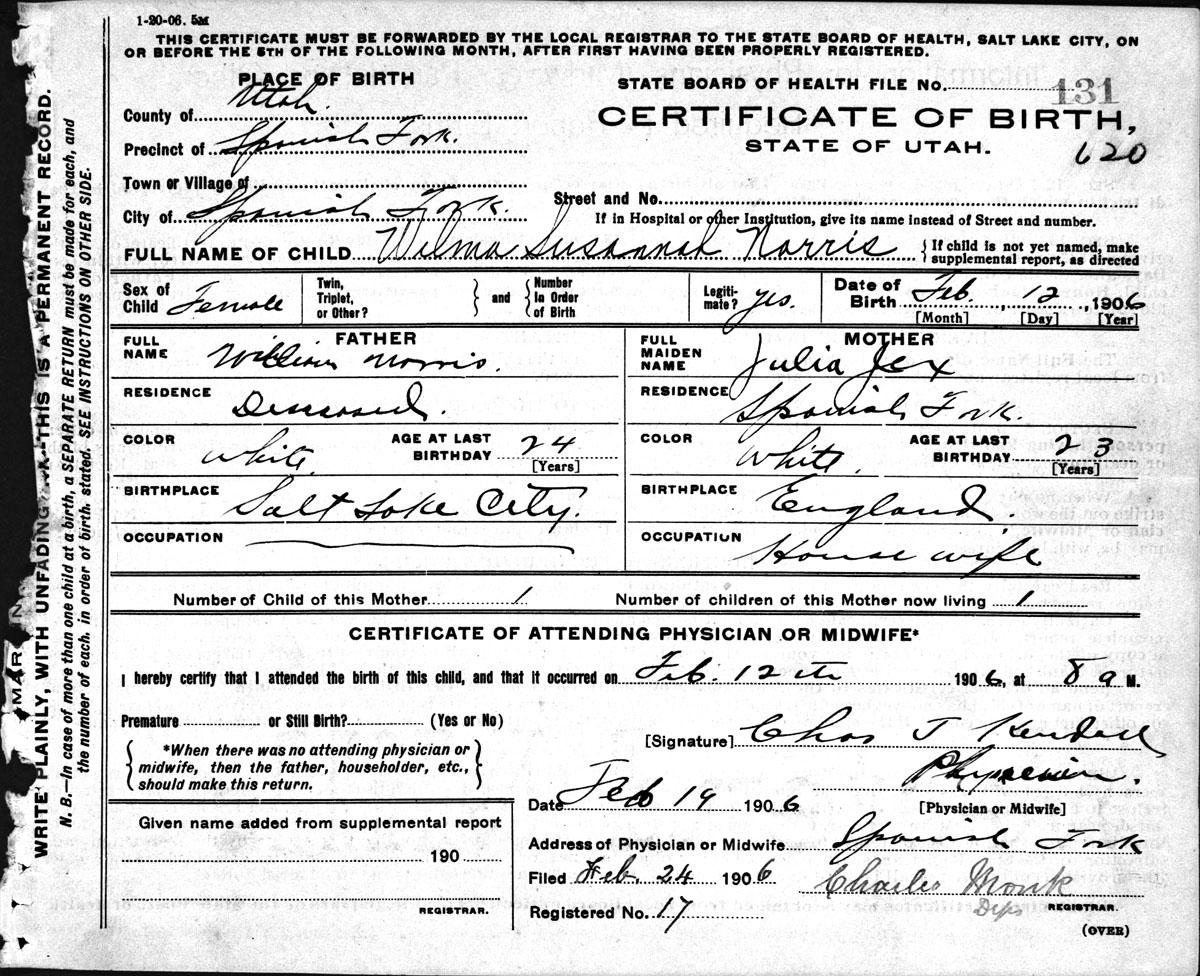 1-20-06. 5M
THIS CERTIFICATE MUST BE FORWARDED BY THE LOCAL REGISTRAR TO THE STATE BOARD OF HEALTH, SALT LAKE CITY, ON
OR BEFORE THE 5TH OF THE FOLLOWING MONTH, AFTER FIRST HAVING BEEN PROPERLY REGISTERED.
PLACE OF BIRTH
STATE BOARD OF HEALTH FILE NO. 131
County of Utah.
CERTIFICATE OF BIRTH,
STATE OF UTAH.
120
Precinct of Spanish Fork.
Town or Village of
Street and No.
City of Spanish Fork.
If in Hospital or other Institution, give its name instead of Street and number.
FULL NAME OF CHILD Wilma Susannah Norris { If child is not yet named, make supplemental report, as directed
Sex of Child Female Twin, Triplet, or Other? } and { Number In Order of Birth Legiti-mate? yes. Date of Birth Feb. 12, 1906
[Month] [Day] [Year]
FATHER
MOTHER
FULL NAME William Norris.
FULL MAIDEN NAME Julia Jex
RESIDENCE Deceased.
RESIDENCE Spanish Fork.
COLOR White. AGE AT LAST BIRTHDAY 24 [Years]
COLOR White. AGE AT LAST BIRTHDAY 23 [Years]
BIRTHPLACE Salt Lake City.
BIRTHPLACE England.
OCCUPATION
OCCUPATION House wife
Number of Child of this Mother 1 Number of children of this Mother now living 1
CERTIFICATE OF ATTENDING PHYSICIAN OR MIDWIFE*
I hereby certify that I attended the birth of this child, and that it occurred on Feb. 12th 1906, at 8 a M.
Premature or Still Birth? (Yes or No)
*When there was no attending physician or
midwife, then the father, householder, etc.,
should make this return.
[Signature] Chas J Kendall
Physician.
[Physician or Midwife]
Date Feb 19 1906
Given name added from supplemental report
190
REGISTRAR.
Address of Physician or Midwife Spanish Fork
Filed Feb. 24 1906
Charles Monk
Dep REGISTRAR.
Registered No. 17
(OVER)
WRITE PLAINLY, WITH UNFADING THIS IS A PERMANENT RECORD.
N. B.—In case of more than one child at a birth, a SEPARATE RETURN must be made for each, and
the number of each, in order of birth, stated. SEE INSTRUCTIONS ON OTHER SIDE.
MAR